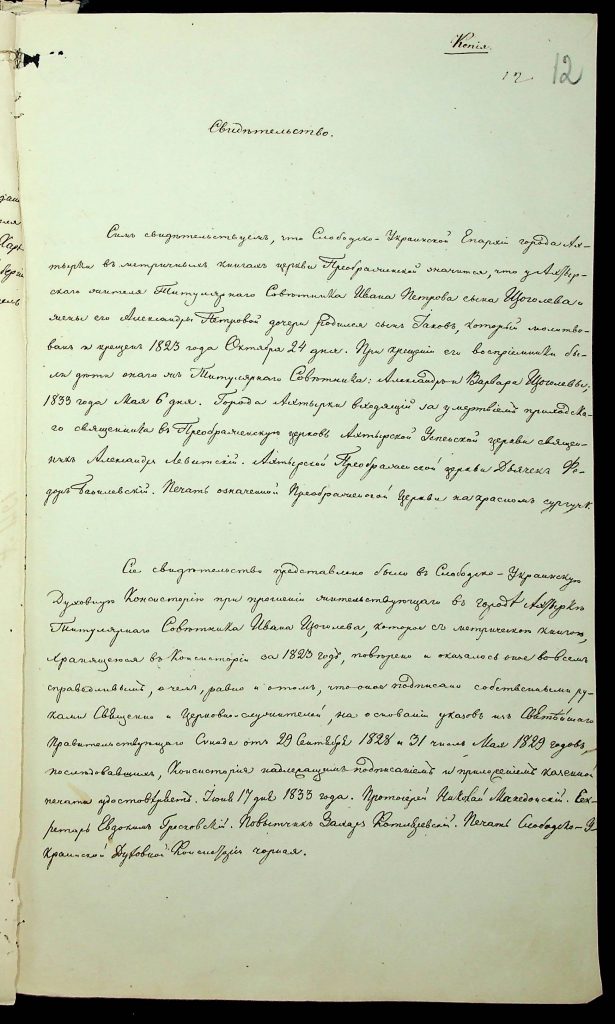 Копія.
12 12
Свидѣтельство.
Симъ свидѣтельствуемъ, что Слободско-Украинской Епархіи города Ах-
тырки въ метричныхъ книгахъ церкви Преображенской значится, что у Ахтыр-
скаго жителя Титулярнаго Совѣтника Ивана Петрова сына Щоголева и
жены его Александры Петровой дочери родился сынъ Іаковъ, который молитво-
ванъ и крещенъ 1823 года Октября 24 дня. При крещеніи его воспріемники бы-
ли дѣти онаго жъ Титулярнаго Совѣтника: Александръ и Варвара Щоголевы,
1833 года Мая 6 дня. Города Ахтырки входящій за умертвіемъ приходска-
го священника въ Преображенскую церковь Ахтырской Успенской церкви священ-
никъ Александръ Левитскій. Ахтырской Преображенской церкви Дьячекъ Фе-
доръ Василевскій. Печать означенной Преображенской Церкви на красномъ сургучѣ.
Сіе свидѣтельство представлено было въ Слободско-Украинскую
Духовную Консисторію при прошеніи жительствующаго въ городѣ Ахтыркѣ
Титулярнаго Совѣтника Ивана Щоголева, которое съ метрическою книгою,
хранящеюся въ Консисторіи за 1823 годъ, повѣрено и оказалось оное во всемъ
справедливымъ, о чемъ, равно и о томъ, что оное подписано собственными ру-
ками Священно и Церковно-служителей, на основаніи указовъ изъ Святѣйшаго
Правительствующаго Синода отъ 29 Сентября 1828 и 31 числа Мая 1829 годовъ
послѣдовавшихъ, Консисторія надлежащимъ подписаніемъ и приложеніемъ казенной
печати удостовѣряетъ. Іюня 17 дня 1833 года. Протоіерей Николай Македонскій. Сек-
ретарь Евдокимъ. Повытчикъ Захаръ. Печать Слободско-У-
краинской Духовной Консисторіи чорная.